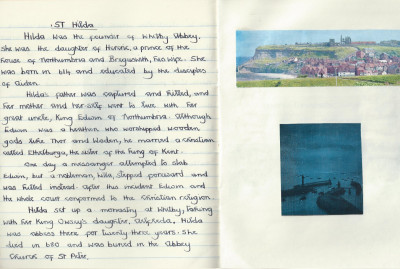 ST Hilda
Hilda was the founder of Whitby Abbey.
She was the daughter of Hereric, a prince of the
house of Northumbria and Bregswith, his wife. She
was born in 614 and educated by the disciples
of Aidan.
Hilda's father was captured and killed, and
her mother and her self went to live with her
great uncle, King Edwin of Northumbria. Although
Edwin was a heathen who worshipped wooden
gods like Thor and Woden, he married a Christian
called Ethelburga, the sister of the King of Kent.
One day a messenger attempted to stab
Edwin, but a nobleman, Lilla, stepped forward and
was killed instead. After this incident Edwin and
the whole court converted to the Christian religion.
Hilda set up a monastry at Whitby, taking
with her King Oswy's daughter, Hilda
was abbess there for twenty three years. She
died in 680 and was buried in the Abbey
Church of St Peter.